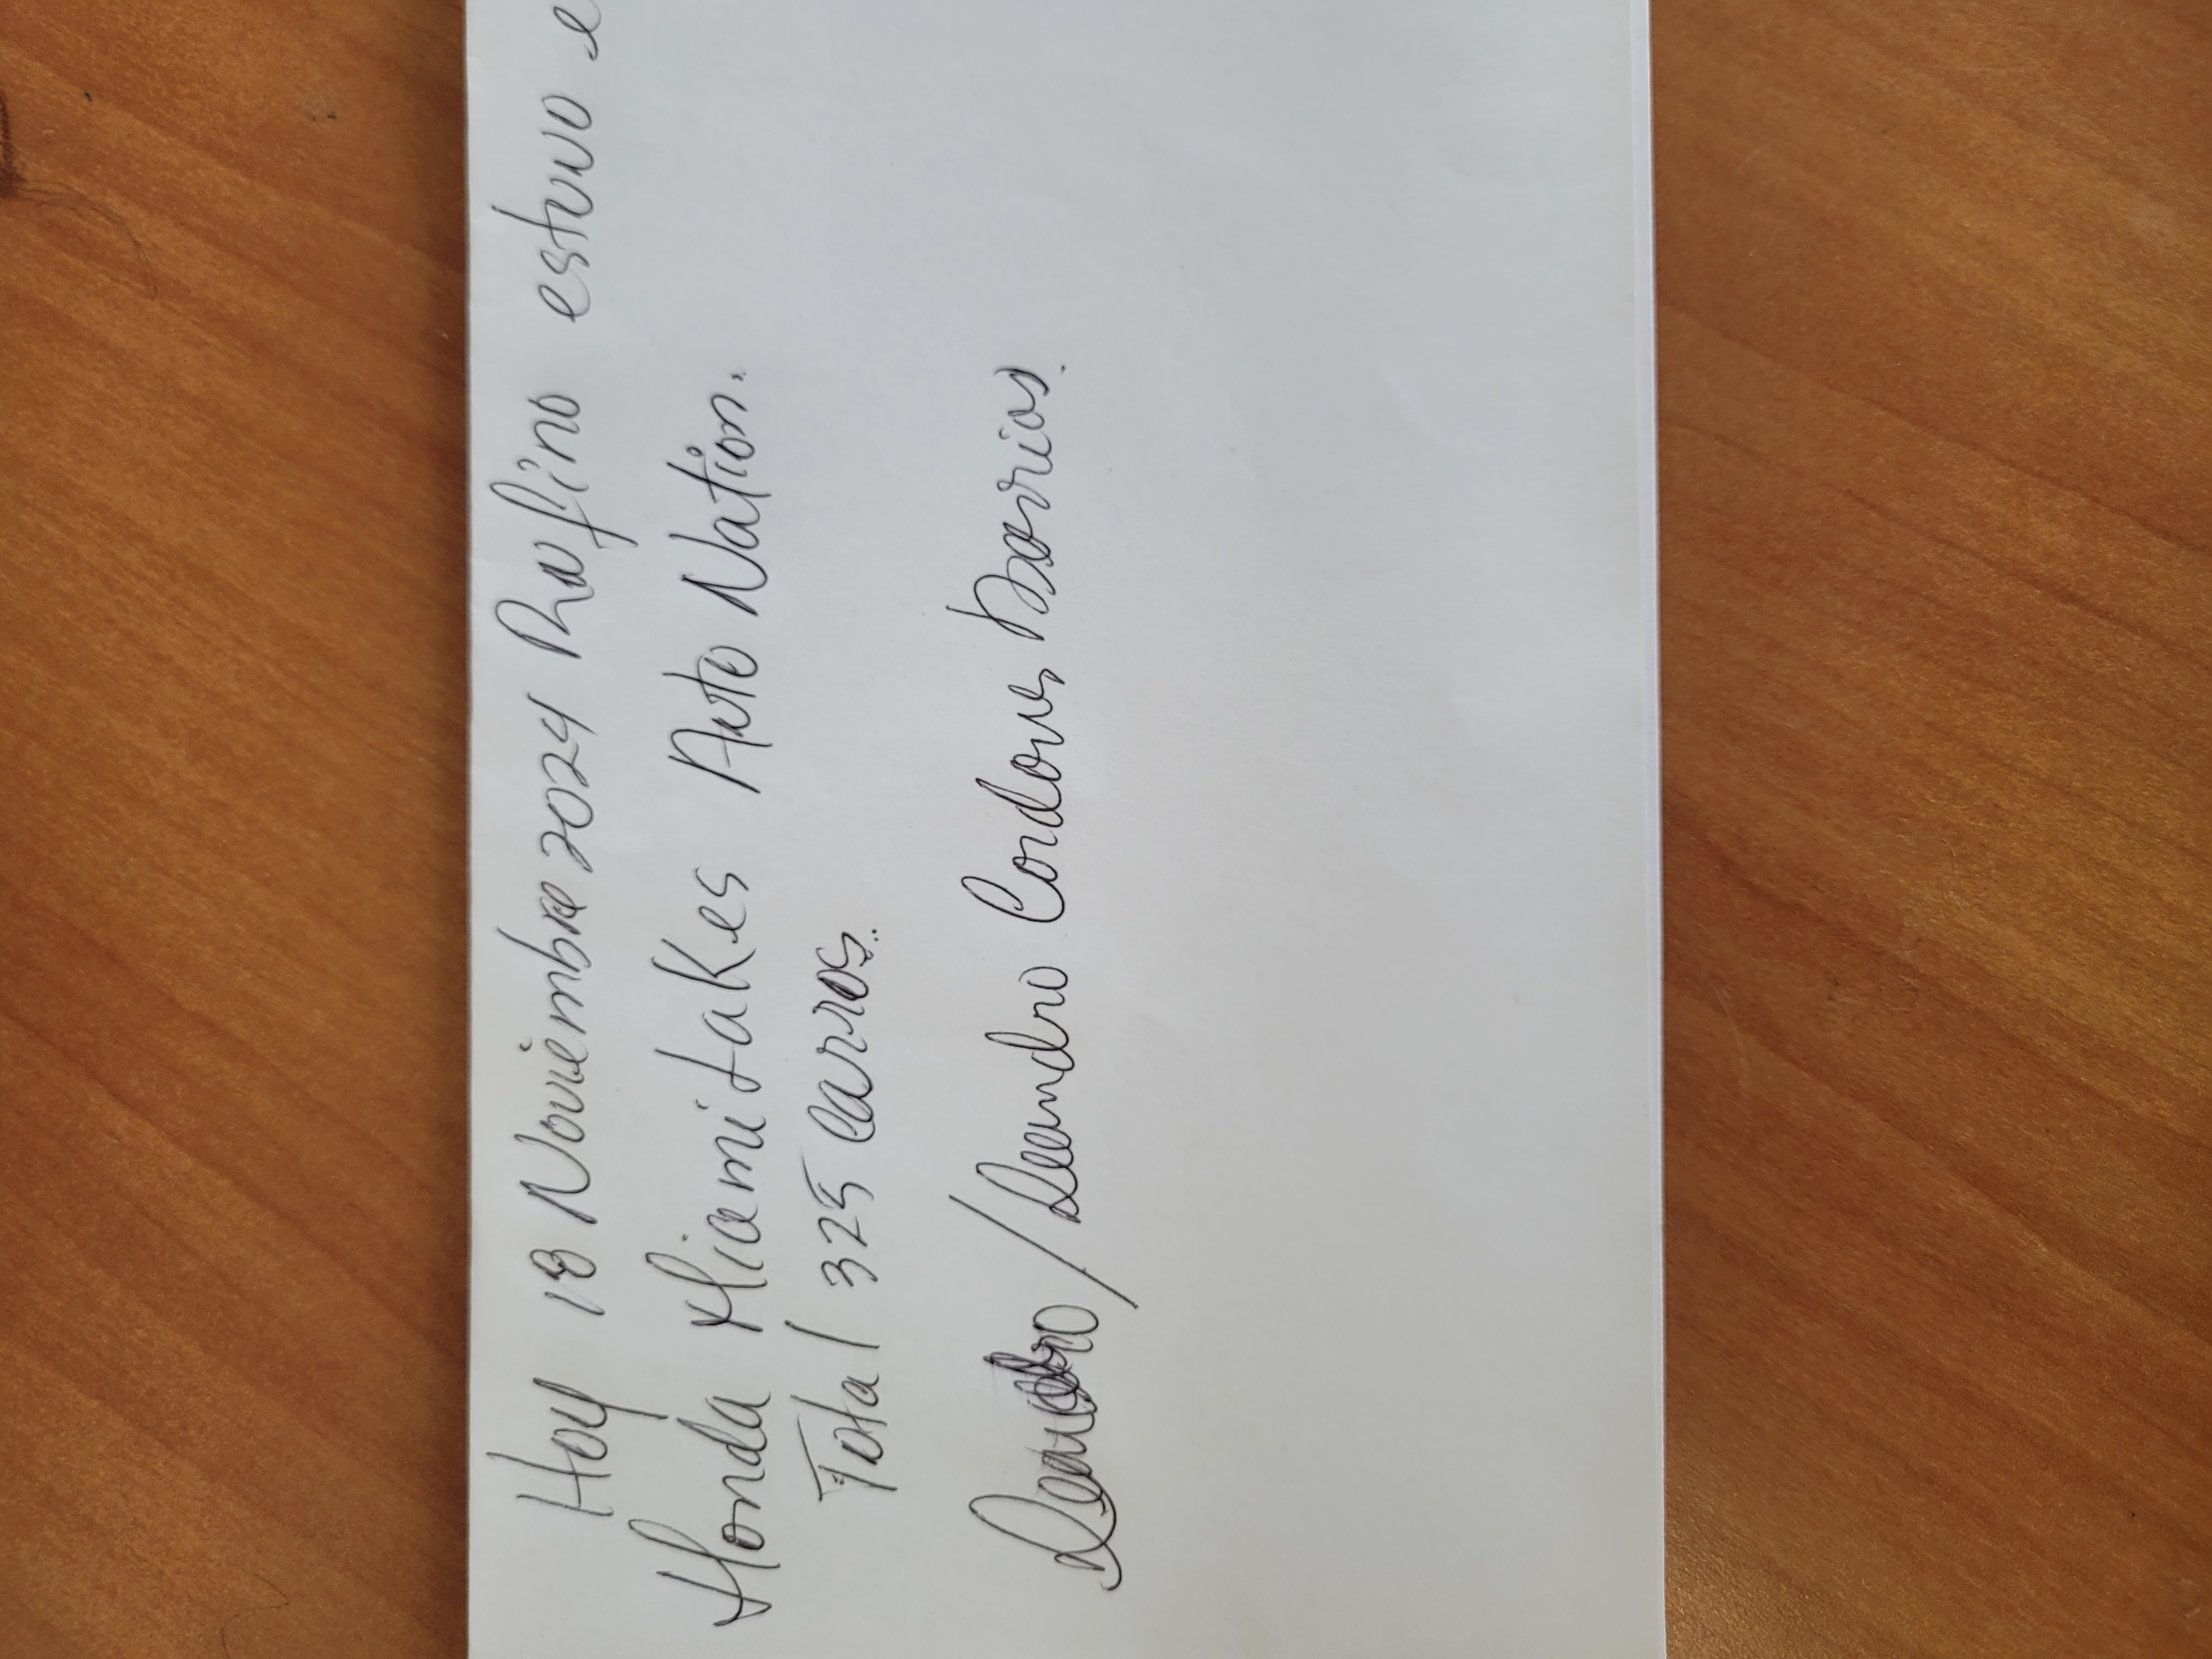 Hoy 18 Noviembre 2024 Raufino estuvo e
Honda Miami Lakes Auto Nation.
Total 325 Carros.
Leandro / Leandro Cordoves Barrios.